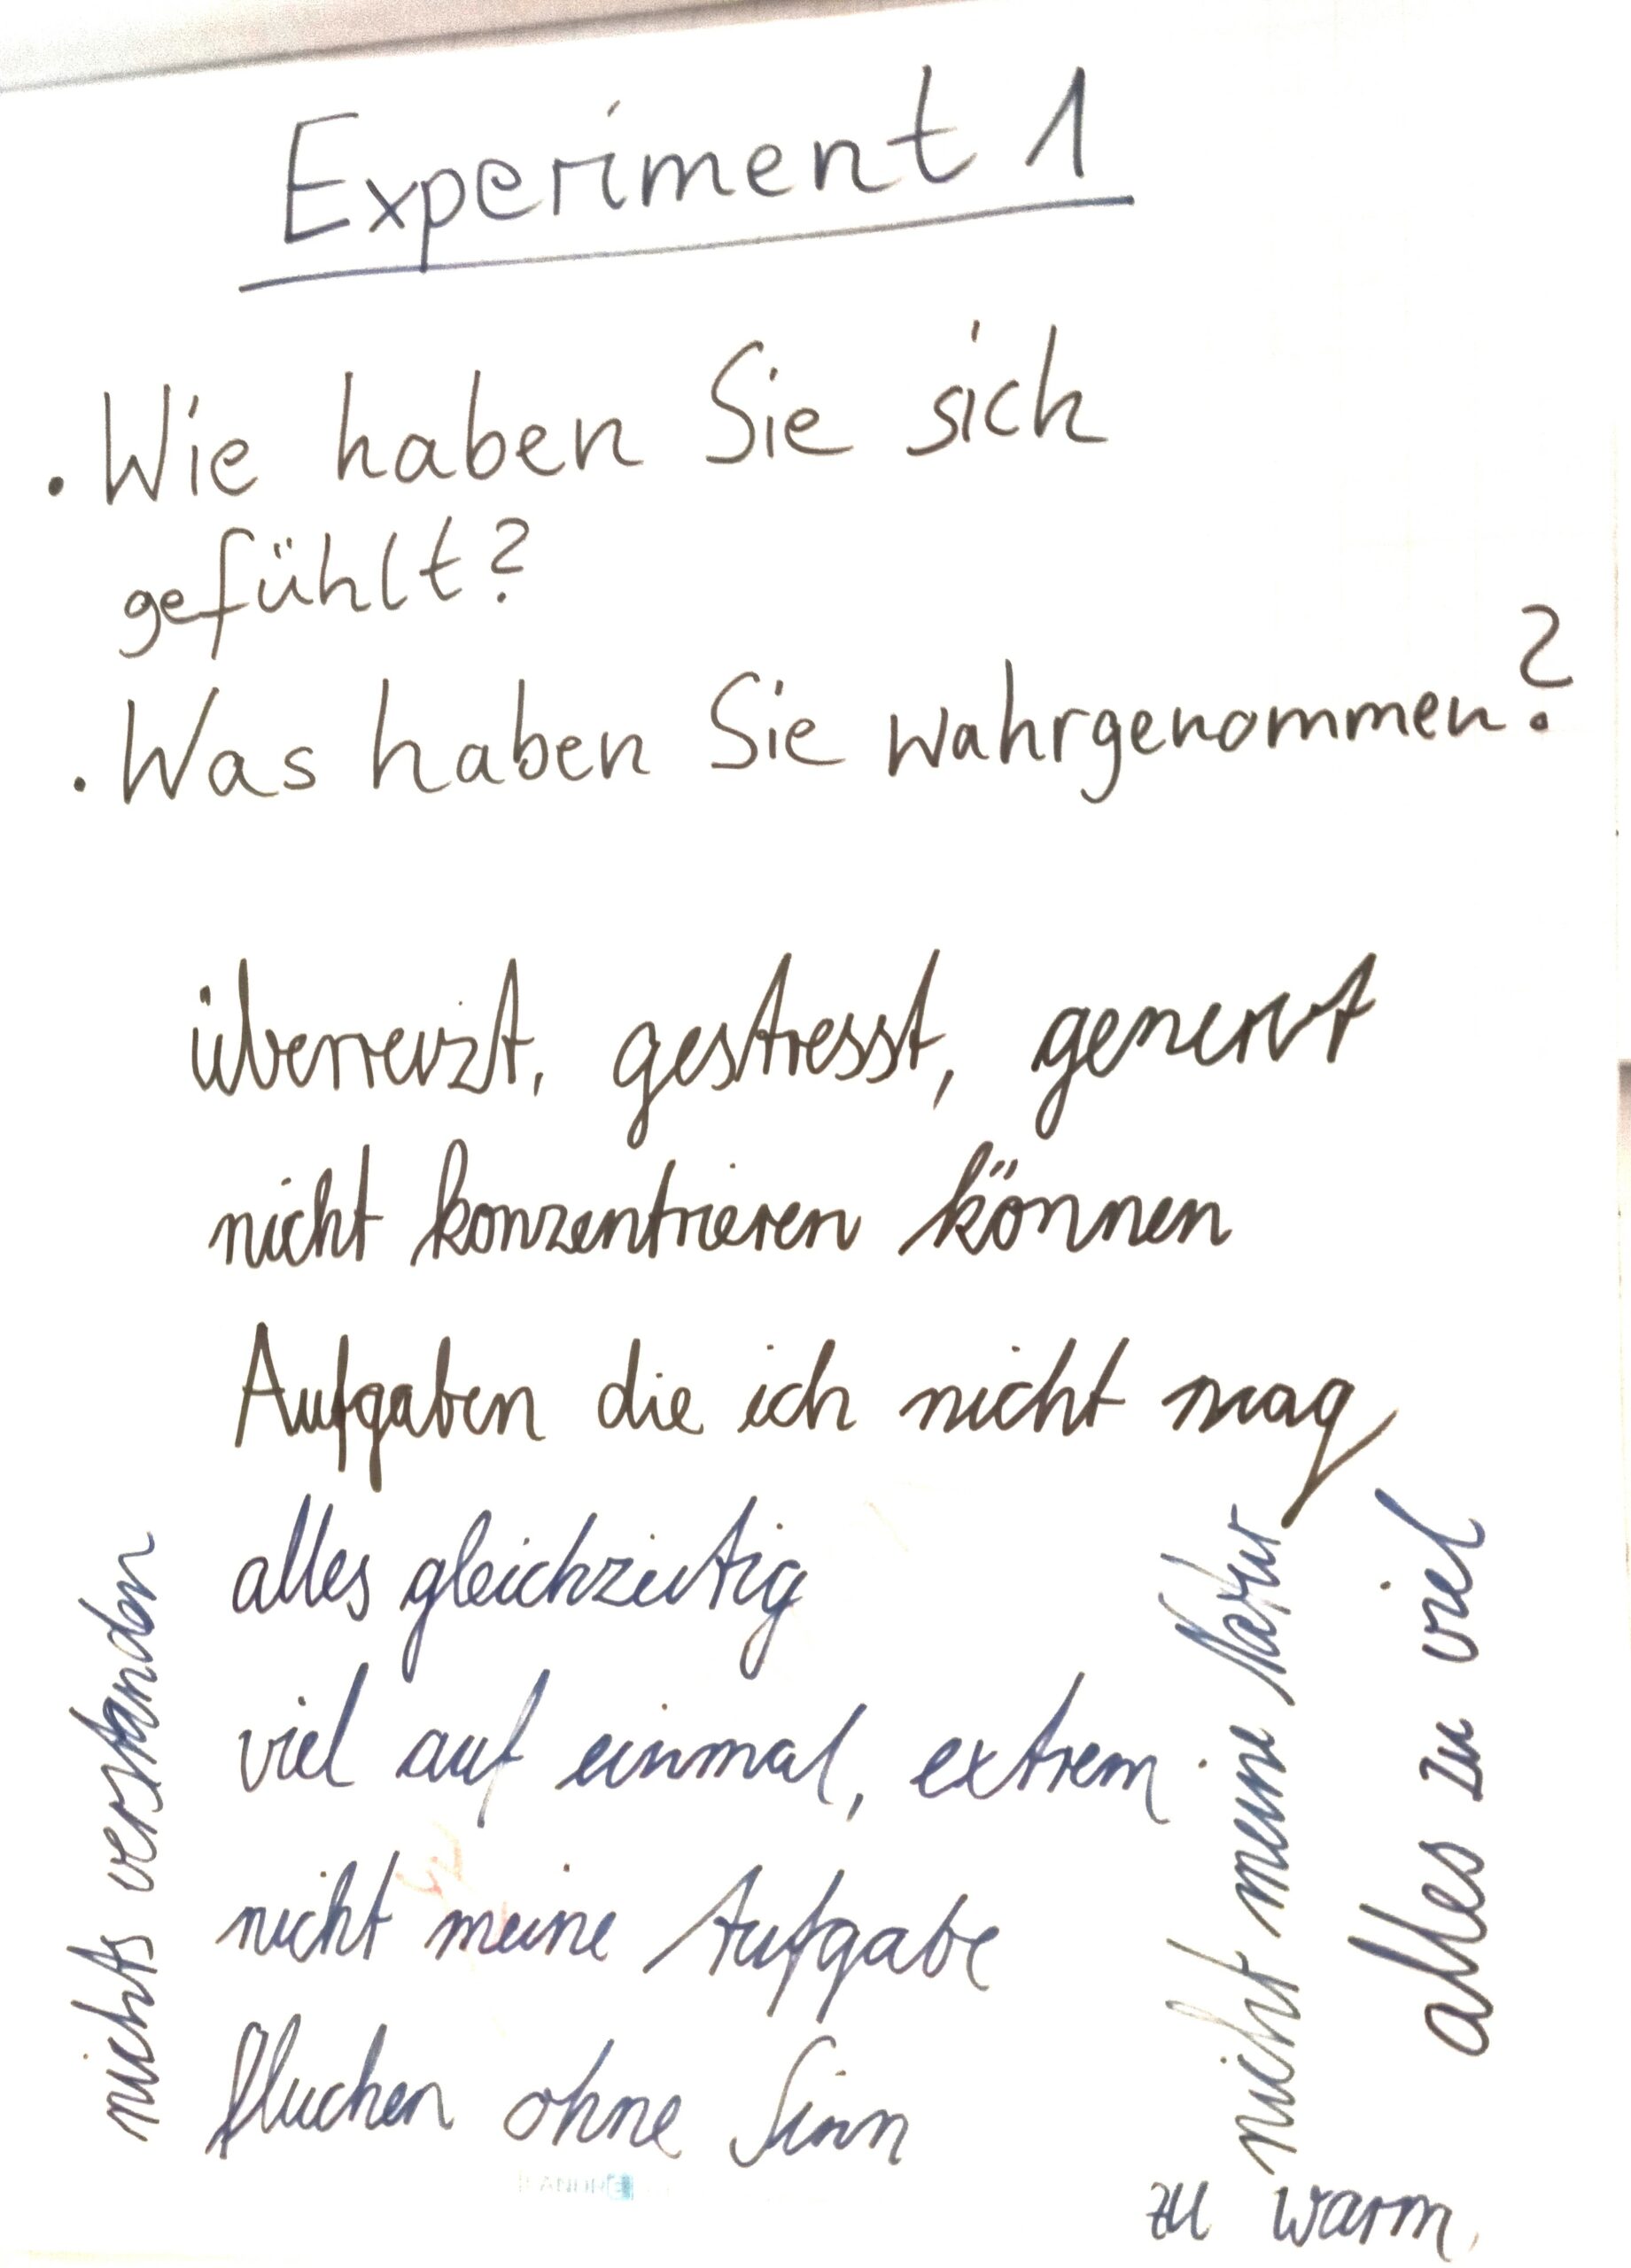 Experiment 1
. Wie haben Sie sich
gefühlt?
. Was haben Sie wahrgenommen?
überreizt, gestresst, genervt
nicht konzentrieren können
Aufgaben die ich nicht mag
alles gleichzeitig
viel auf einmal, extrem.
nicht meine Aufgabe
fluchen ohne Sinn
nichts verstanden
nicht meine Natur
alles zu viel
zu warm,